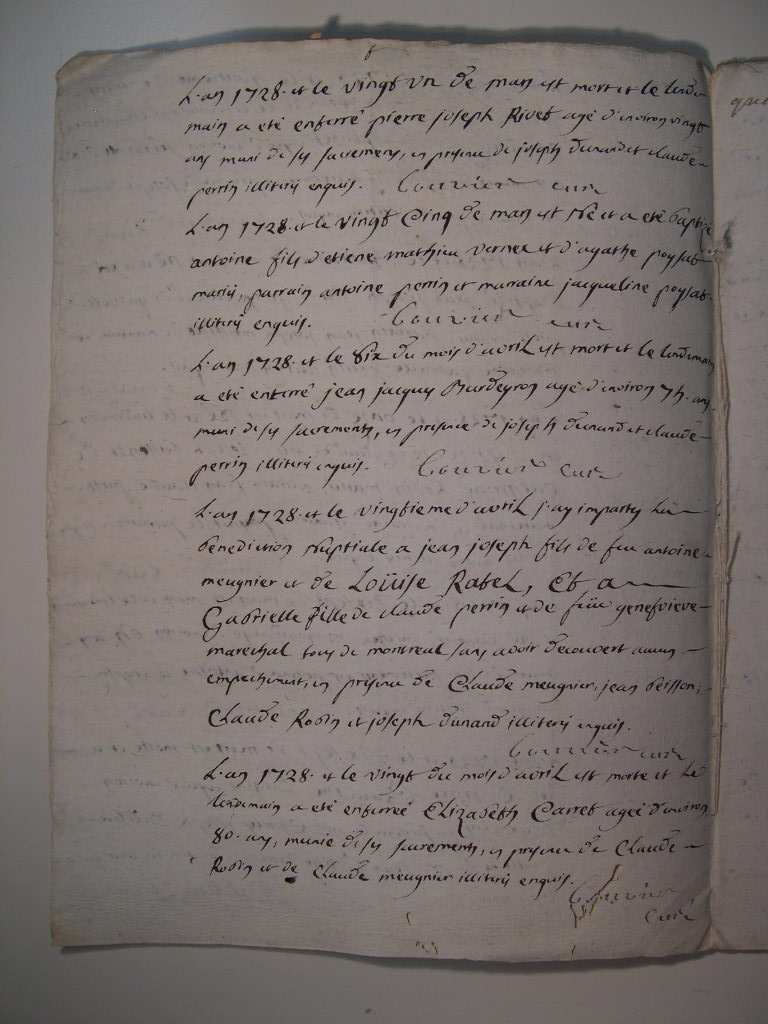 L'an 1728. et le vingt un de mars est mort et le lende
main a eté enterré pierre joseph Rivet agé d'environ vingt
ans muni de ses sacremens, en presence de joseph Durand et claude
perrin illiterés enquis. Bouvier curé
L'an 1728. et le vingt Cinq de mars est Né et a eté baptizé
antoine fils d'etiene mathieu vernee et d'agathe poysat
mariés, parrain antoine perrin et marraine jacqueline poysat
illiterés enquis. Bouvier curé
L'an 1728. et le six du mois d'avril est mort et le lendemain
a eté enterré jean jacques Burdeyron agé d'environ 74. ans
muni de ses sacrements, en presence de joseph Durand et claude
perrin illiterés enquis. Bouvier curé
L'an 1728. et le vingtieme d'avril j'ay imparty la
benediction Nuptiale a jean joseph fils de feu antoine
meugnier et de Loüise Ratel, Et a
Gabrielle fille de claude perrin et de feüe genefvieve
marechal tous de montreal sans avoir decouvert aucun
empechement, en presence de Claude meugnier, jean
Claude Robin et joseph Durand illiterés enquis.
Bouvier curé
L'an 1728. et le vingt du mois d'avril est morte et Le
lendemain a eté enterreé Elizabeth Carret ageé d'environ
80. ans, munie de ses sacrements, en presence de Claude
Robin et de Claude meugnier illiterés enquis.
Bouvier
curé